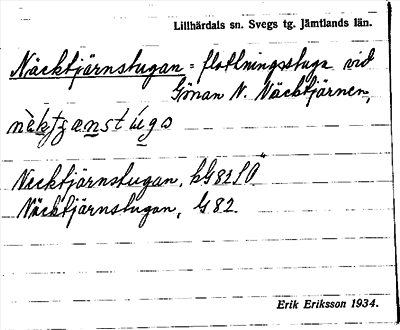 Lillhärdals sn. Svegs tg. Jämtlands län.
Näcktjärnstugan = flottningsstuga vid
Gönan N. Näcktjärnen,
Necktjärnstugan, kG82SO.
Näcktjärnstugan, G82.
Erik Eriksson 1934.